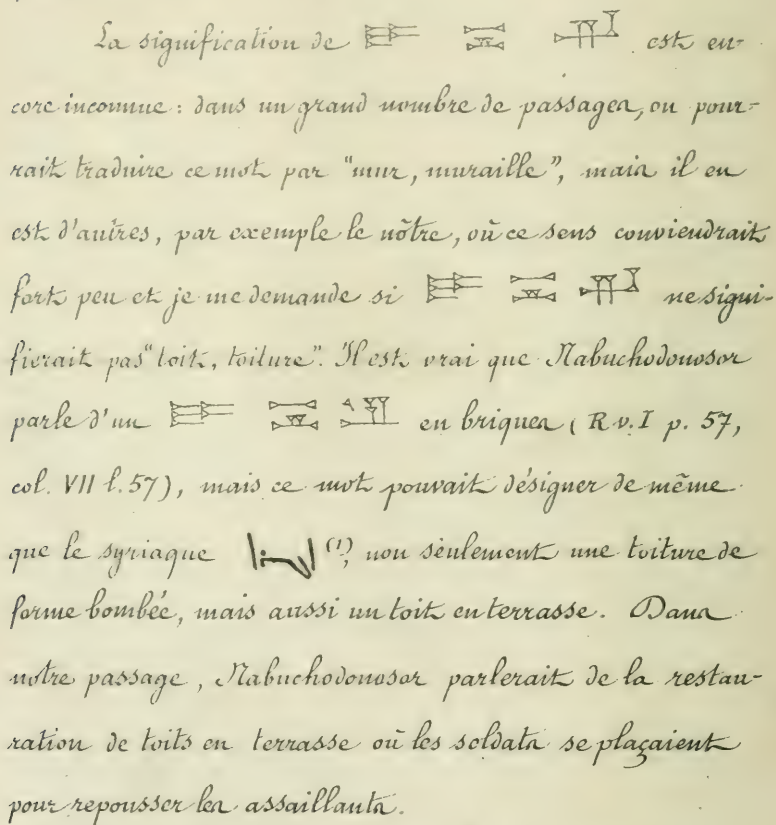 La signification de est en-
core inconnue : dans un grand nombre de passages, on pour-
rait traduire ce mot par "mur, muraille", mais il en
est d'autres, par exemple le nôtre, où ce sens conviendrait
fort peu et je me demande si ne signi-
fierait pas "toit, toiture". Il est vrai que Nabuchodonosor
parle d'un en briques (R v. I p. 57,
col. VII l. 57), mais ce mot pouvait désigner de même
que le syriaque (1), non seulement une toiture de
forme bombée, mais aussi un toit en terrasse. Dans
notre passage, Nabuchodonosor parlerait de la restau-
ration de toits en terrasse où les soldats se plaçaient
pour repousser les assaillants.